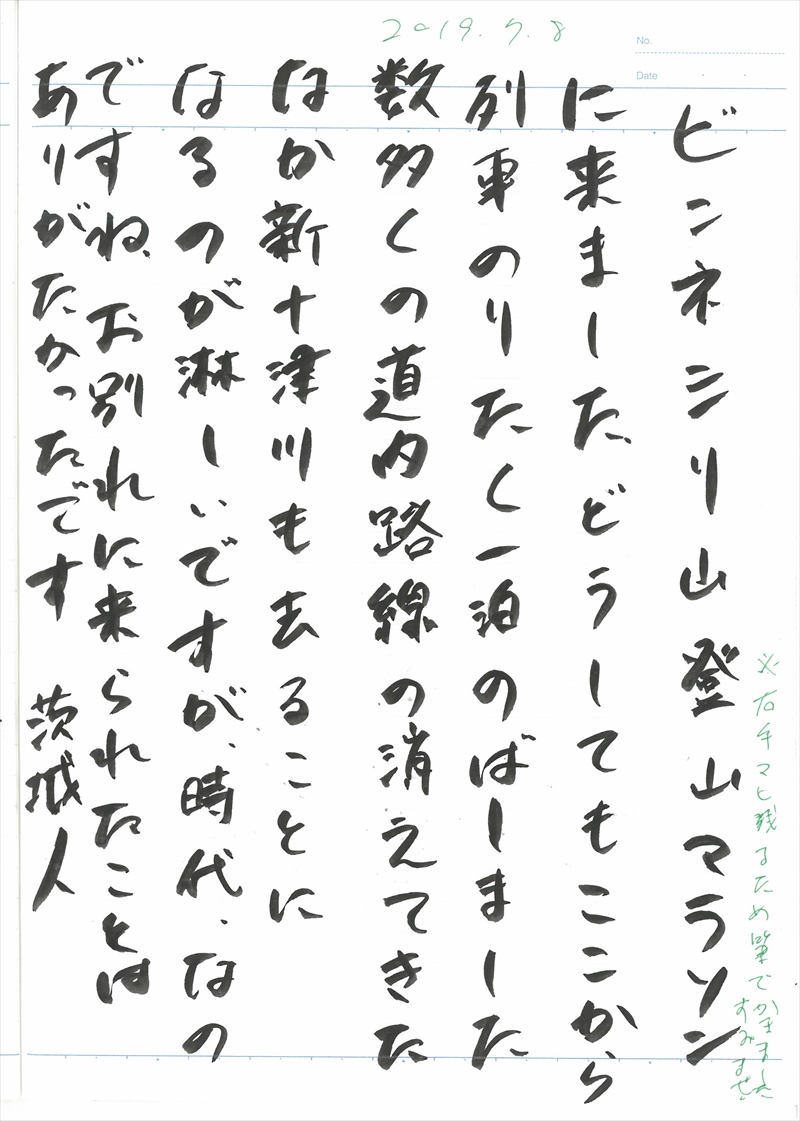 2019.7.8
No.
Date
※右手マヒ残るため筆でかきました
すみません
ピンネシリ山登山マラソン
に来ました、どうしてもここから
列車のりたく一泊のばしました
数多くの道内路線の消えてきた
なか新十津川も去ることに
なるのが淋しいですが、時代、なの
ですね、お別れに来られたことは
ありがたかったです 茨城人